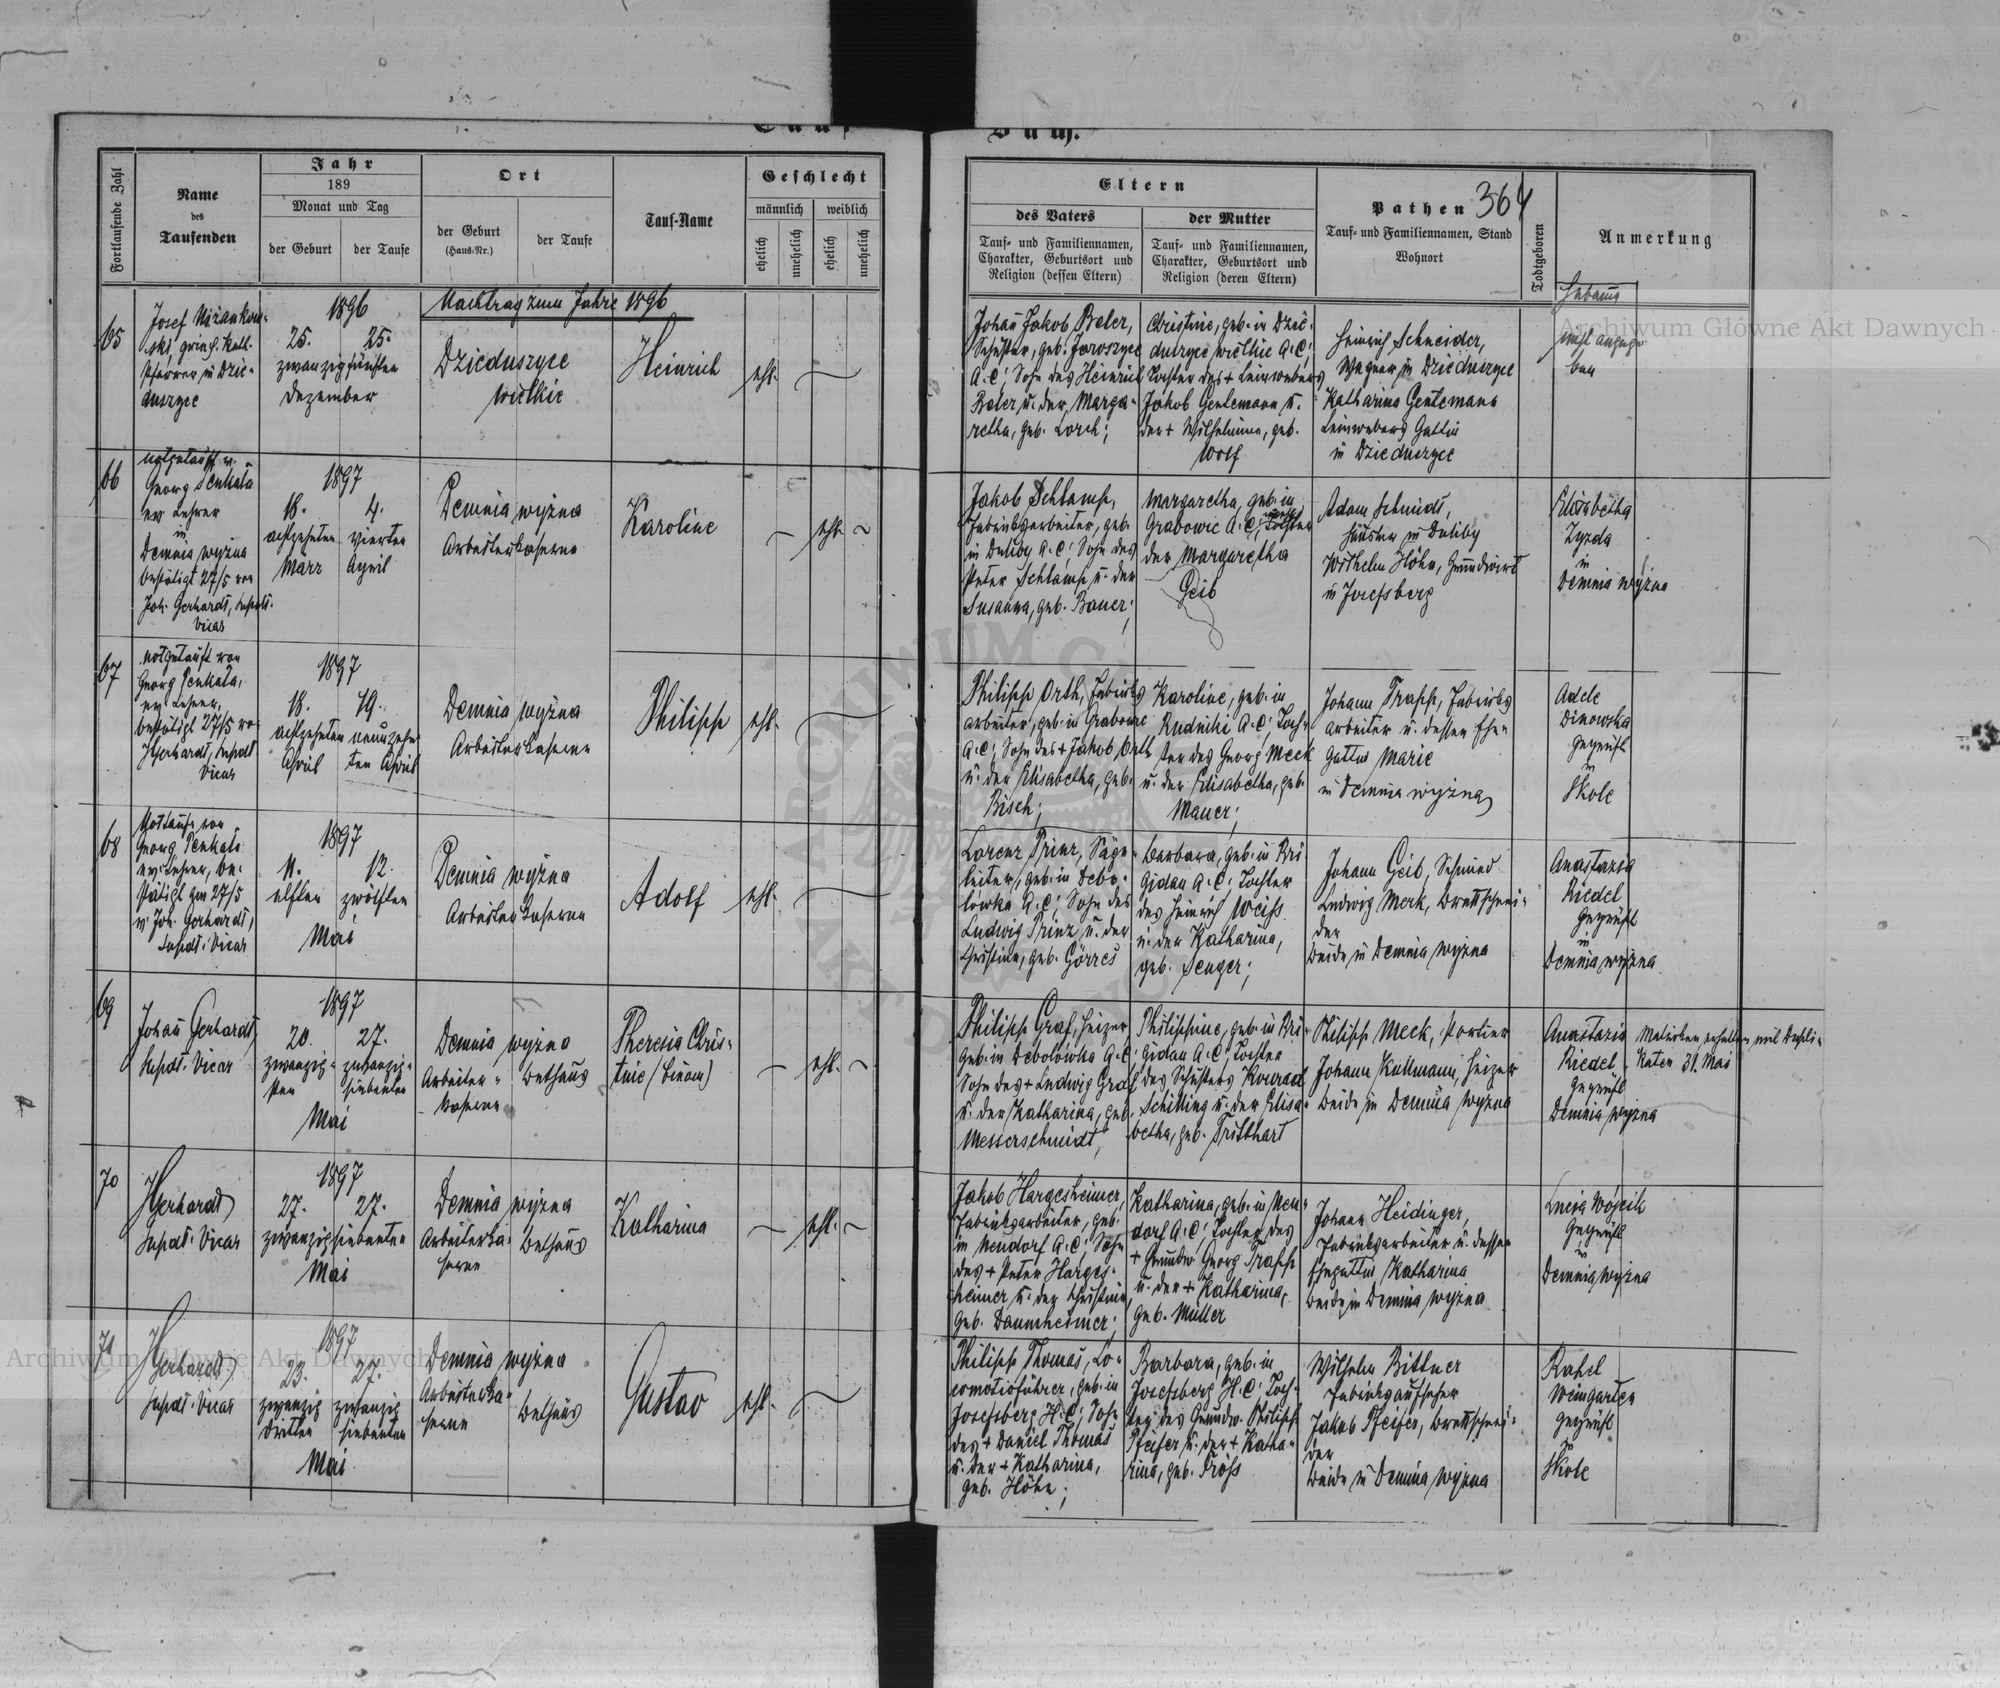 Tauf
Buch.
Fortlaufende Zahl
Name
des
Taufenden
Jahr
189
Monat und Tag
der Geburt
der Taufe
Ort
der Geburt
(Haus-Nr.)
der Taufe
Tauf-Name
Geschlecht
männlich
weiblich
ehelich
unehelich
ehelich
unehelich
Eltern
des Vaters
Tauf- und Familiennamen,
Charakter, Geburtsort und
Religion (dessen Eltern)
der Mutter
Tauf- und Familiennamen,
Charakter, Geburtsort und
Religion (deren Eltern)
Pathen
364
Tauf- und Familiennamen, Stand
Wohnort
Todtgeboren
Anmerkung
Hebamme
Nachtrag zum Jahre 1896
65
Josef
griech. kath.
Pfarrer in Dzie-
duszyce
1896
25.
25.
zwanzigfünften
Dezember
Dzieduszyce
wielkie
Heinrich
ehl.
Johan Jakob Beler,
Schuster, geb. Jaroszyce
A.C; Sohn des Heinrich
Beler u. der Marga-
retha, geb. Lorch;
Christine, geb. in Dzie-
duszyce wielkie A.C;
Tochter des + Leinwebers
Jakob Gentemann u.
der + Wilhelmine, geb.
Wolf
Heinrich Schneider,
Wagner in Dzieduszyce
Katharina Gentemann
Leinwebers Gattin
in Dzieduszyce
nicht angege-
ben
66
notgetauft v.
Georg Penkala
ev Lehrer
in
Demnia wyżna
bestätigt 27/5 von
Joh. Gerhardt, Supdt.
Vicar
1897
18.
4.
achtzehnten
vierten
März
April
Demnia wyżna
Arbeiterkaserne
Karoline
ehl.
Jakob Schlamp,
Fabriksarbeiter, geb.
in Duliby A.C; Sohn des
Peter Schlamp u. der
Susanna, geb. Bauer;
Margaretha, geb. in
Grabowce A.C; Tochter
der Margaretha
Geib
Adam Schmidt,
in Duliby
Wilhelm Höhn, Grundwirt
in Josefsberg
Elisabetha
Zyzda
in
Demnia wyżna
67
notgetauft von
Georg Penkala,
ev Lehrer,
bestätigt 27/5 von
JGerhardt, Supdt
Vicar
1897
18.
19.
achtzehnten
neunzehn-
April
ten April
Demnia wyżna
Arbeiterkaserne
Philipp
ehl.
Philipp Orth, Fabriks
arbeiter, geb. in Grabowce
A.C; Sohn des + Jakob Orth
u. der Elisabetha, geb.
Bisch;
Karoline, geb. in
Rudniki A.C; Toch-
ter des Georg Meck
u. der Elisabetha, geb.
Mauer;
Johann Trapp, Fabriks
arbeiter u. dessen Ehe-
gattin Marie
in Demnia wyżna
Adele
Dinowska
geprüft
in
Skole
68
Nottaufe von
Georg Penkala
ev. Lehrer, be-
stätigt am 27/5
v. Joh. Gerhardt,
Supdt. Vicar
1897
11.
12.
elften
zwölften
Mai
Demnia wyżna
Arbeiterkaserne
Adolf
ehl.
Lorenz Prinz, Säge-
leiter, geb. in Debo-
lowka A.C; Sohn des
Ludwig Prinz u. der
Christine, geb. Görres
Barbara, geb. in Bri-
gidau A.C; Tochter
des Heinrich Weiss
u. der Katharina,
geb. Senger;
Johann Geib, Schmied
Ludwig Merk, Brettschnei-
der
Beide in Demnia wyżna
Anastazia
Riedel
geprüft
in
Demnia wyżna
69
Johan Gerhardt,
Supdt. Vicar
1897
20.
27.
zwanzig-
sten
zwanzig-
siebenten
Mai
Demnia wyżna
Arbeiter-
kaserne
Bethaus
Theresia Chris-
tine (Binom)
ehl.
Philipp Graf, Heizer
geb. in Debolowka A.C;
Sohn des + Ludwig Graf
u. der Katharina, geb.
Messerschmidt,
Philippine, geb. in Bri-
gidau A.C; Tochter
des Schusters Konrad
Schilling u. der Elisa-
betha, geb. Tritthart
Philipp Meck, Portier
Johann Kullmann, Heizer
Beide in Demnia wyżna
Anastazia
Riedel
geprüft
Demnia wyżna
Matriken erhalten mit Dupli-
katen 31. Mai
70
JGerhardt
Supdt. Vicar
1897
27.
27.
zwanzigsiebenten
Mai
Demnia wyżna
Arbeiterka-
serne
Bethaus
Katharina
ehl.
Jakob Hargesheimer,
Fabriksarbeiter, geb.
in Neudorf A.C; Sohn
des + Peter Harges-
heimer u. der Christine,
geb. Daumheimer;
Katharina, geb. in Neu-
dorf A.C; Tochter des
+ Grundw Georg Trapp
u. der + Katharina,
geb. Müller
Johann Heidinger,
Fabriksarbeiter u. dessen
Ehegattin Katharina
beide in Demnia wyżna
Lucia Wojcik
geprüft
in
Demnia wyżna
71
JGerhardt
Supdt. Vicar
1897
23.
27.
zwanzig
dritten
zwanzig
siebenten
Mai
Demnia wyżna
Arbeiterka-
serne
Bethaus
Gustav
ehl.
Philipp Thomas, Lo-
comotivführer, geb. in
Josefsberg H.C; Sohn
des + Daniel Thomas
u. der + Katharina,
geb. Höhn;
Barbara, geb. in
Josefsberg H.C; Toch-
ter des Grundw. Philipp
Pfeifer u. der + Katha-
rina, geb. Fröss
Wilhelm Bittner
Fabriksaufseher
Jakob Pfeifer, Brettschnei-
der
Beide in Demnia wyżna
Rahel
Weingarten
geprüft
in
Skole
Archiwum Główne Akt Dawnych
Archiwum Główne Akt Dawnych